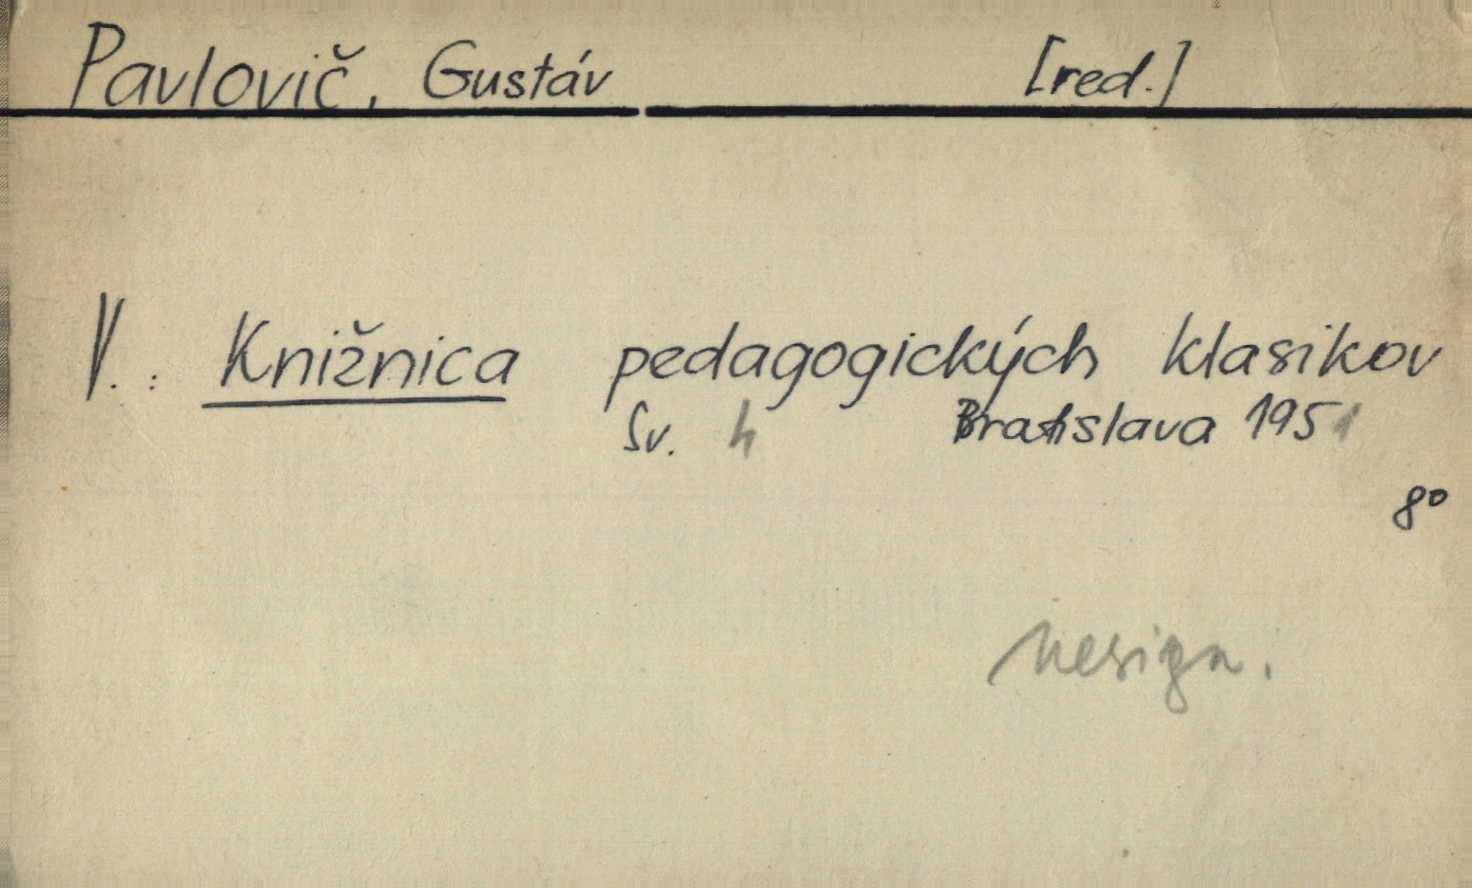 Pavlovič, Gustáv [red.]
V. : Knižnica pedagogických klasikov
Sv. 4 Bratislava 1951
8°
nesign.